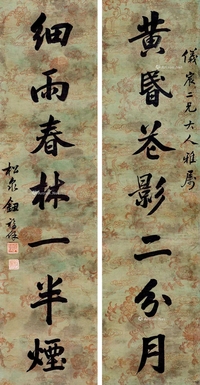 儀宸二兄大人雅屬
黃昏花影二分月
細雨春林一半煙
松泉鈕福厚